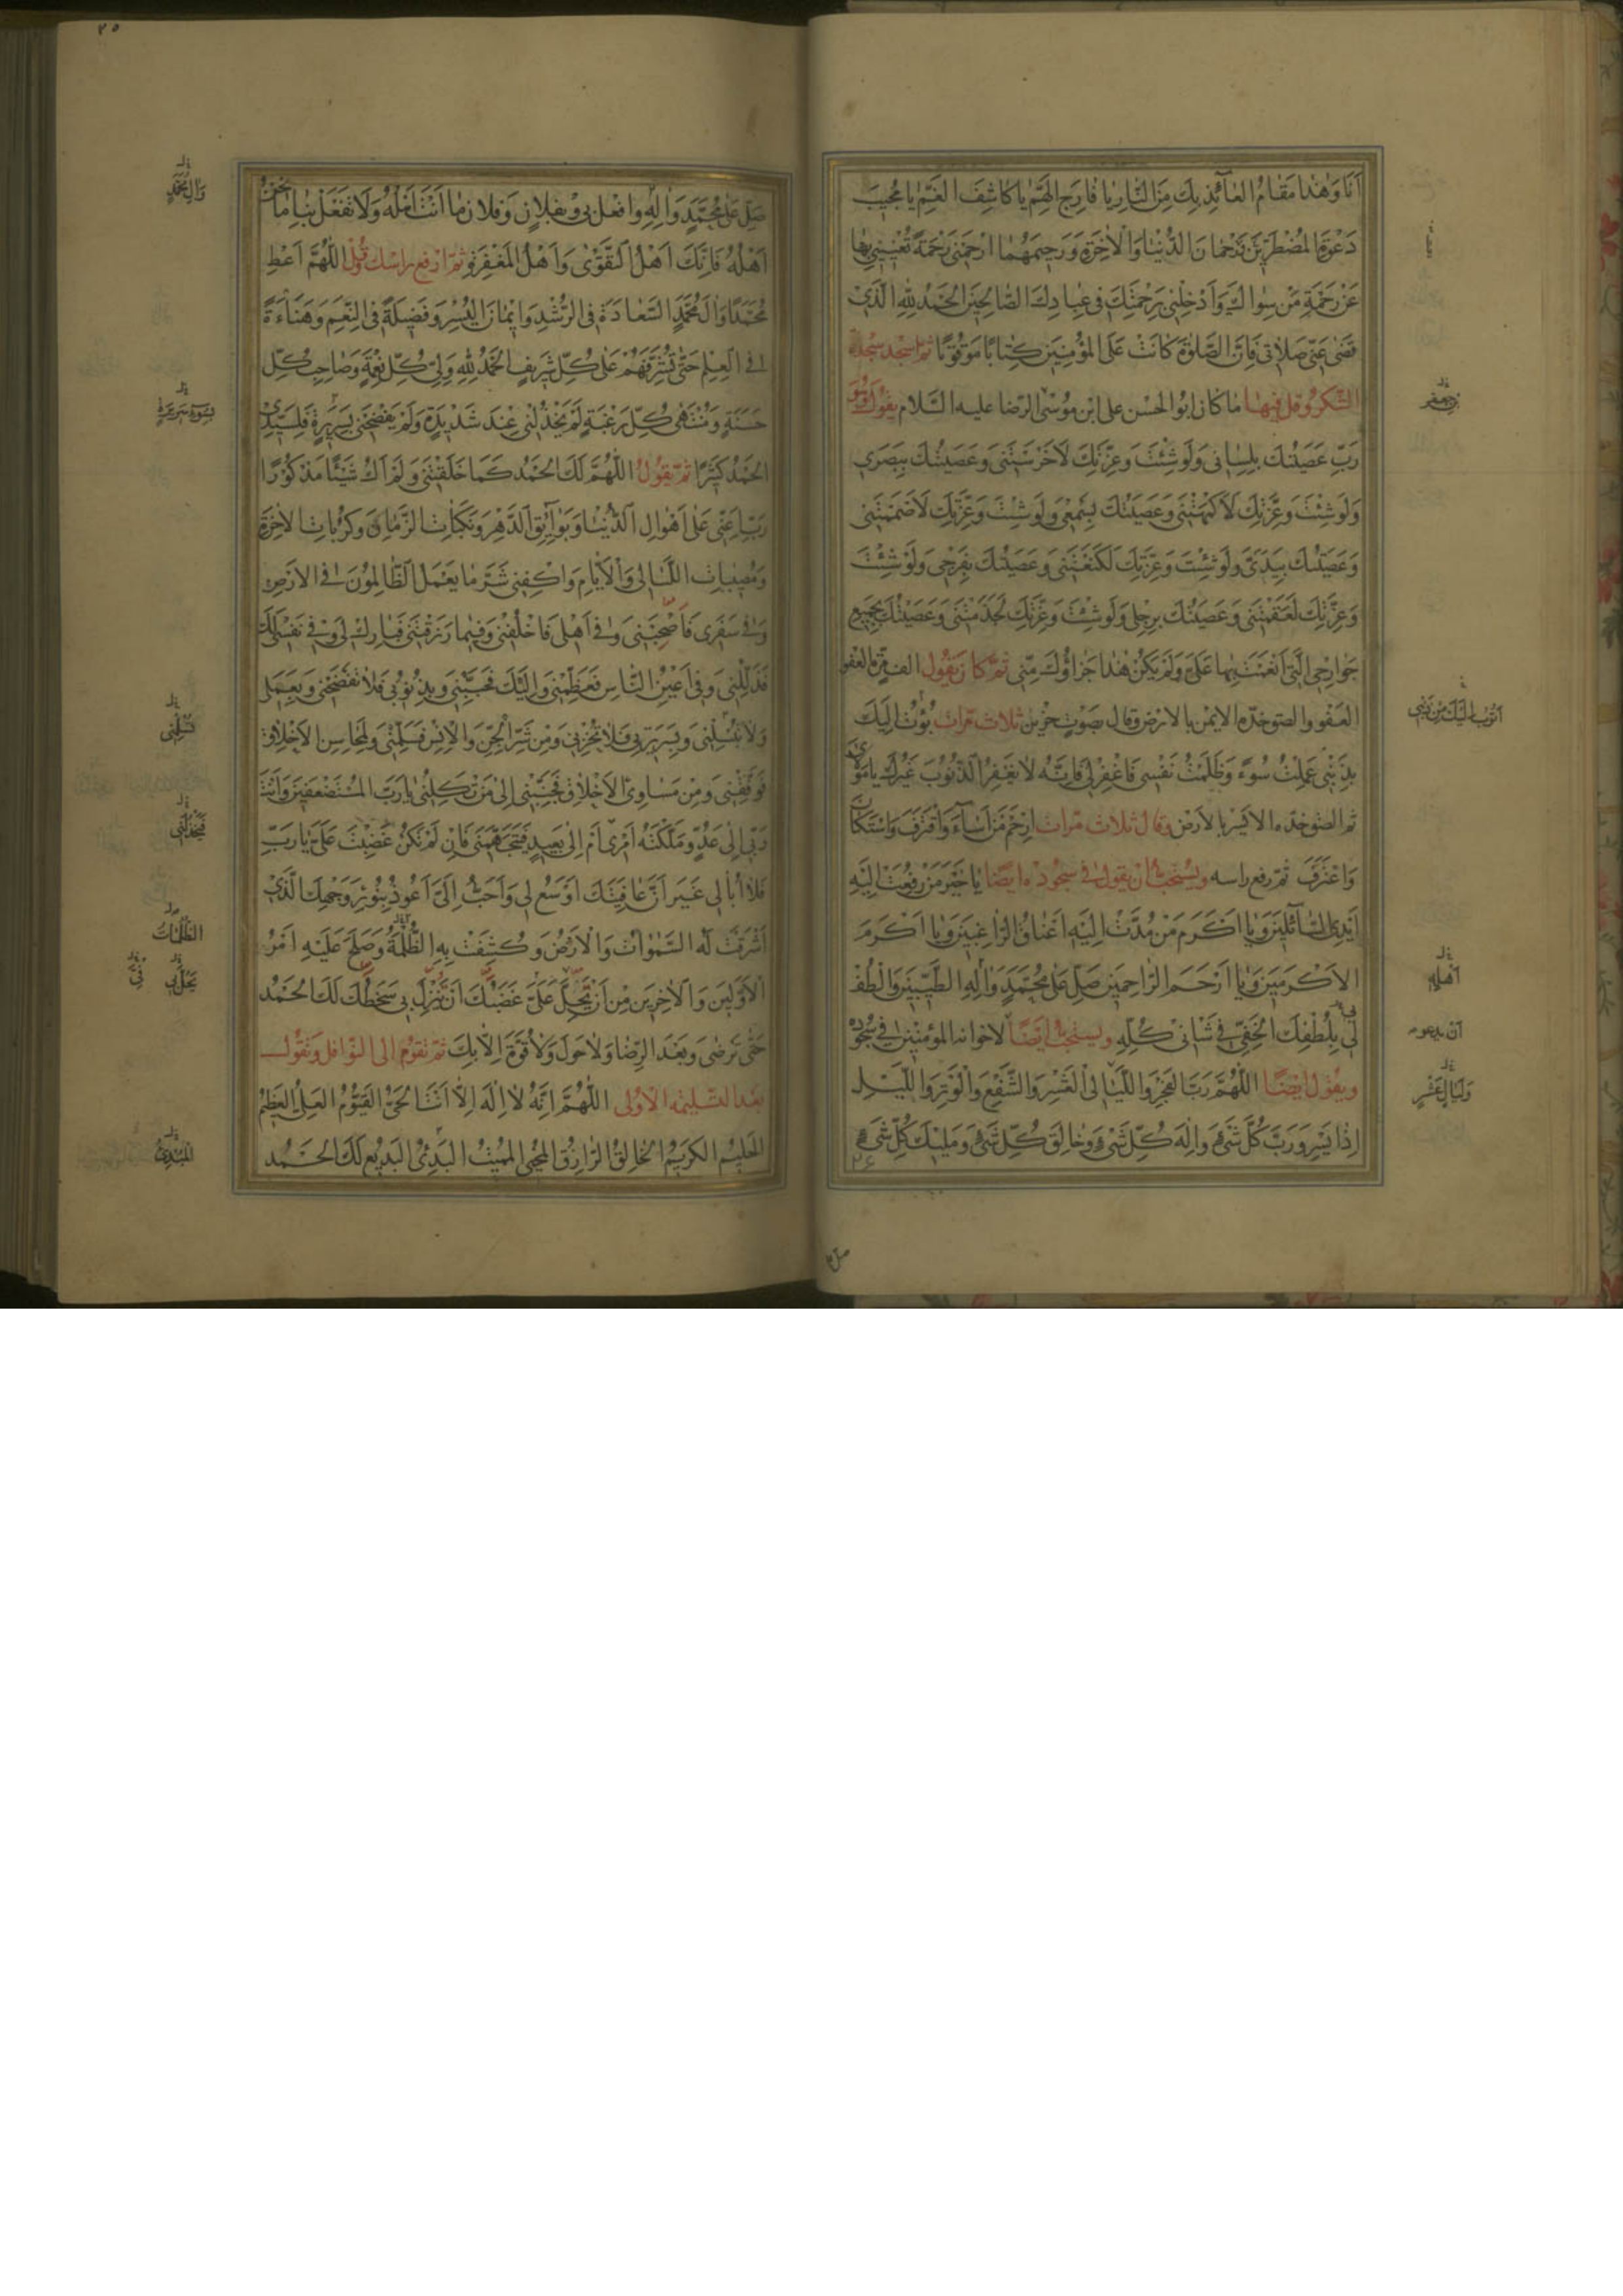 اَنَا وَهٰذا مَقامُ العآئِذِ بِكَ مِنَ النّارِ يا فارِجَ الهَمِّ يا كاشِفَ الغَمِّ يا مُجيبَ
دَعْوَةِ المُضْطَرّينَ يا رَحْمانَ الدُّنْيا وَالْاٰخِرَةِ وَرَحيمَهُما اِرْحَمْني رَحْمَةً تُغْنيني بِها
عَنْ رَحْمَةِ مَنْ سِواكَ وَاَدْخِلْني بِرَحْمَتِكَ في عِبادِكَ الصّالِحينَ الحَمْدُ لِلّٰهِ الَّذي
قَضىٰ عَنّي صَلاتي فَاِنَّ الصَّلوٰةَ كانَتْ عَلَى المُؤْمِنينَ كِتابًا مَوْقُوتًا ثم اسجد سجدة
الشكر وقل فيها ما كان ابو الحسن علي ابن موسى الرضا عليه السلام يقول
رَبِّ عَصَيْتُكَ بِلِساني وَلَوْ شِئْتَ وَعِزَّتِكَ لَاَخْرَسْتَني وَعَصَيْتُكَ بِبَصَري
وَلَوْ شِئْتَ وَعِزَّتِكَ لَاَكْمَهْتَني وَعَصَيْتُكَ بِسَمْعي وَلَوْ شِئْتَ وَعِزَّتِكَ لَاَصْمَمْتَني
وَعَصَيْتُكَ بِيَدَيَّ وَلَوْ شِئْتَ وَعِزَّتِكَ لَكَنَّعْتَني وَعَصَيْتُكَ بِفَرْجي وَلَوْ شِئْتَ
وَعِزَّتِكَ لَعَقَمْتَني وَعَصَيْتُكَ بِرِجْلي وَلَوْ شِئْتَ وَعِزَّتِكَ لَجَذَمْتَني وَعَصَيْتُكَ بِجَميعِ
جَوارِحِي الَّتي اَنْعَمْتَ بِها عَلَيَّ وَلَمْ يَكُنْ هٰذا جَزاؤُكَ مِنّي ثم كان يقول الف مرة العفو
العفو والصق خده الايمن بالارض وقال بصوت حزين ثلاث مرات بُؤْتُ اِلَيْكَ
بِذَنْبي عَمِلْتُ سُوءً وَظَلَمْتُ نَفْسي فَاغْفِرْ لي فَاِنَّهُ لا يَغْفِرُ الذُّنُوبَ غَيْرُكَ يا مَوْلايَ
ثم الصق خده الايسر بالارض وقال ثلاث مرات اِرْحَمْ مَنْ اَسآءَ وَاقْتَرَفَ وَاسْتَكانَ
وَاعْتَرَفَ ثم رفع راسه ويستحب ان يقول في سجوده ايضًا يا خَيْرَ مَنْ رُفِعَتْ اِلَيْهِ
اَيْدِي السّآئِلينَ وَيا اَكْرَمَ مَنْ مُدَّتْ اِلَيْهِ اَعْناقُ الرّاغِبينَ وَيا اَكْرَمَ
الاَكْرَمينَ وَيا اَرْحَمَ الرّاحِمينَ صَلِّ عَلىٰ مُحَمَّدٍ وَاٰلِهِ الطَّيِّبينَ وَالْطُفْ
لي بِلُطْفِكَ الخَفِيِّ في شَأني كُلِّهِ ويستحب ايضًا لاخوانه المؤمنين في سجوده
ويقول ايضًا اَللّٰهُمَّ رَبَّ الفَجْرِ وَاللَّيالِي الْعَشْرِ وَالشَّفْعِ وَالْوَتْرِ وَاللَّيْلِ
اِذا يَسْرِ وَرَبَّ كُلِّ شَيْءٍ وَاِلٰهَ كُلِّ شَيْءٍ وَخالِقَ كُلِّ شَيْءٍ وَمَليكَ كُلِّ شَيْءٍ
٢٤
اَتُوبُ اِلَيْكَ مِنْ ذَنْبي
اَهْلِهِ
ان يدعو
وَلَيالٍ عَشْرٍ
٢٥
صَلِّ عَلىٰ مُحَمَّدٍ وَاٰلِهِ وَافْعَلْ بي وَبِفُلانٍ وَفُلانٍ ما اَنْتَ اَهْلُهُ وَلا تَفْعَلْ بِنا ما نَحْنُ
اَهْلُهُ فَاِنَّكَ اَهْلُ التَّقْوىٰ وَاَهْلُ المَغْفِرَةِ ثم ارفع راسك وقل اَللّٰهُمَّ اَعْطِ
مُحَمَّدًا وَاٰلَ مُحَمَّدٍ السَّعادَةَ فِي الرُّشْدِ وَايمانَ اليُسْرِ وَفَضيلَةً فِي النِّعَمِ وَهَناءَةً
فِي العِلْمِ حَتّىٰ تُشَرِّفَهُمْ عَلىٰ كُلِّ شَريفٍ الحَمْدُ لِلّٰهِ وَلِيِّ كُلِّ نِعْمَةٍ وَصاحِبِ كُلِّ
حَسَنَةٍ وَمُنْتَهىٰ كُلِّ رَغْبَةٍ لَمْ يَخْذُلْني عِنْدَ شَديدَةٍ وَلَمْ يَفْضَحْني بِسَريرَةٍ فَلِسَيِّدِي
الحَمْدُ كَثيرًا ثم تقول اَللّٰهُمَّ لَكَ الحَمْدُ كَما خَلَقْتَني وَلَمْ اَكُ شَيْئًا مَذْكُورًا
رَبِّ اَعِنّي عَلىٰ اَهْوالِ الدُّنْيا وَبَوآئِقِ الدَّهْرِ وَنَكَباتِ الزَّمانِ وَكُرُباتِ الاٰخِرَةِ
وَمُصيباتِ اللَّيالي وَالْاَيّامِ وَاكْفِني شَرَّ ما يَعْمَلُ الظّالِمُونَ فِي الاَرْضِ
وَفي سَفَري فَاصْحَبْني وَفي اَهْلي فَاخْلُفْني وَفيما رَزَقْتَني فَبارِكْ لي وَفي نَفْسي لَكَ
فَذَلِّلْني وَفي اَعْيُنِ النّاسِ فَعَظِّمْني وَاِلَيْكَ فَحَبِّبْني وَبِذُنُوبي فَلا تَفْضَحْني وَبِعَمَلي
وَلا تُبْسِلْني وَبِسَريرَتي فَلا تُخْزِني وَمِنْ شَرِّ الْجِنِّ وَالْاِنْسِ فَسَلِّمْني وَلِمَحاسِنِ الاَخْلاقِ
فَوَفِّقْني وَمِنْ مَساوِي الاَخْلاقِ فَجَنِّبْني اِلىٰ مَنْ تَكِلُني يا رَبَّ المُسْتَضْعَفينَ وَاَنْتَ
رَبّي اِلىٰ عَدُوٍّ مَلَّكْتَهُ اَمْري اَمْ اِلىٰ بَعيدٍ فَيَتَجَهَّمُني فَاِنْ لَمْ تَكُنْ غَضِبْتَ عَلَيَّ يا رَبِّ
فَلا اُبالي غَيْرَ اَنَّ عافِيَتَكَ اَوْسَعُ لي وَاَحَبُّ اِلَيَّ اَعُوذُ بِنُورِ وَجْهِكَ الَّذي
اَشْرَقَتْ لَهُ السَّمٰواتُ وَالْاَرْضُ وَكُشِفَتْ بِهِ الظُّلْمَةُ وَصَلَحَ عَلَيْهِ اَمْرُ
الْاَوَّلينَ وَالْاٰخِرينَ مِنْ اَنْ يَحِلَّ عَلَيَّ غَضَبُكَ اَوْ يَنْزِلَ بي سَخَطُكَ لَكَ الحَمْدُ
حَتّىٰ تَرْضىٰ وَبَعْدَ الرِّضا وَلا حَوْلَ وَلا قُوَّةَ اِلّا بِكَ ثم تقوم الى النوافل وتقول
بعد التسليمة الاولى اَللّٰهُمَّ اِنَّهُ لا اِلٰهَ اِلّا اَنْتَ الحَيُّ القَيُّومُ العَلِيُّ العَظيمُ
الحَليمُ الكَريمُ الخالِقُ الرّازِقُ المُحْيِي المُميتُ البَدِيءُ البَديعُ لَكَ الحَمْدُ
وَاٰلِ مُحَمَّدٍ
بِسُوءِ سَريرَةٍ
الظُّلُماتُ
المُبْدِئُ